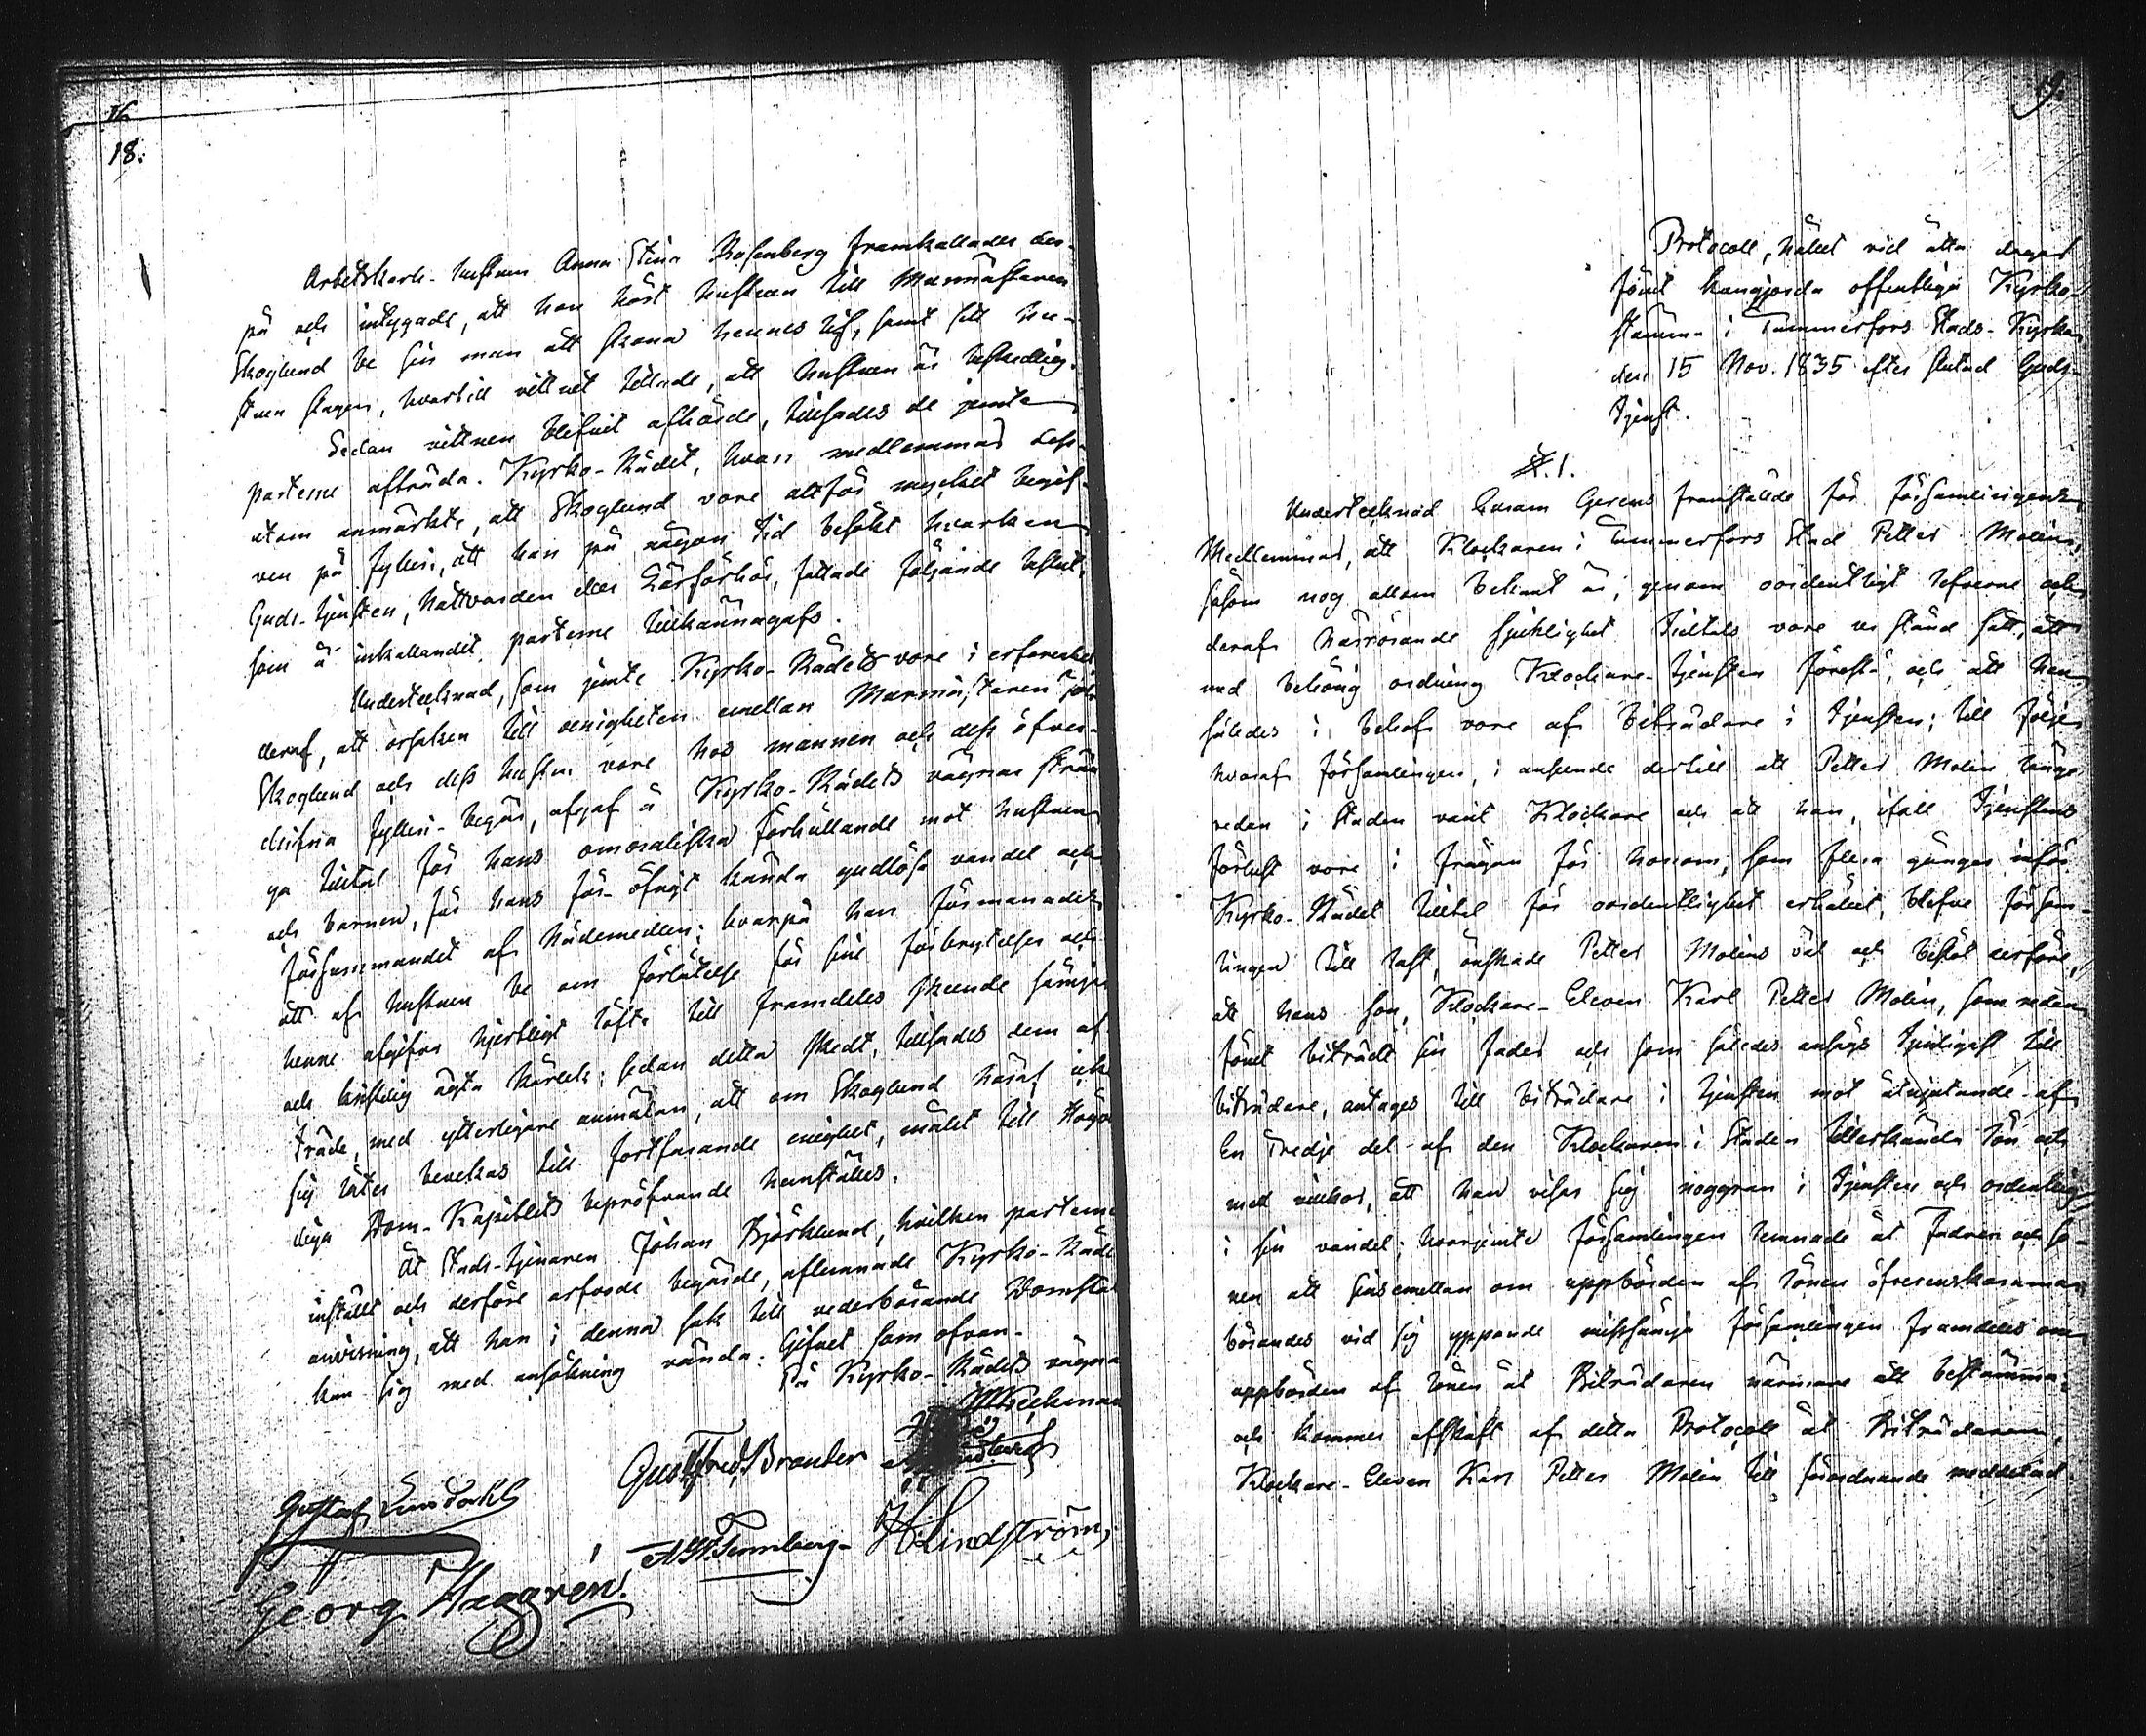 16
18.
Arbetskarls-hustrun Anna Stina Rosenberg framkallades der-
på och intygade, att hon hört hustrun till Murmästaren
Skoglund be sin man att skona hennes lif, samt sett hu-
strun slagen, hvartill vittnet tillade, att hustrun är beskedlig.
Sedan vittnen blifvit afhörde, tillsades de jemte
parterne afträda. Kyrko-Rådet, hvars medlemmar dess-
utom anmärkte, att Skoglund vore alltför mycket begif-
ven på fylleri, att han på någon tid besökt hvarken
Guds-tjensten, Nattvarden eller Läsförhör, fattade följande beslut,
som å inkallandet parterne tillkännagafs.
Undertecknad, som jemte Kyrko-Rådet vore i erfarenhet
deraf, att orsaken till oenigheten emellan Murmästaren
Skoglund och dess hustru vore hos mannen och dess öfver-
drifna fylleri-begär, afgaf å Kyrko-Rådets vägnar strän
ga tilltal för hans omoraliska förhållande mot hustrun
och barnen, för hans för-öfrigt kända gudlösa vandel och
försummandet af Nådemedlen; hvarpå han förmanades
att af hustrun be om förlåtelse för sine förbrytelser och
henne afgifva hjertligt löfte till framdeles skeende sämja
och kristlig ägta kärlek; sedan detta skedt, tillsades dem af-
träda, med ytterligare anmälan, att om Skoglund häraf icke
sig låter bevekas till fortfarande enighet, målet till Högvör
diga Dom-Kapitlets bepröfvande hemställes.
Åt Stads-tjenaren Johan Björklund, hvilken parterne
inställt och derföre arfvode begärde, aflemnade Kyrko-Råde
anvisning, att han i denna sak till vederbörande Domstol
kan sig med ansökning vända. Gifvet som ofvan.
På Kyrko-Rådets vägnar
Gust Fred. Brander
Gustaf
A. W. Tennberg H Lindström,
Georg Häggrén.
19.
Protocoll, hållet vid åtta dagar
förut kungjorda offentliga Kyrko-
stämma i Tammerfors Stads-Kyrka
den 15 Nov. 1835 efter slutad Guds-
tjenst.
§.1.
Undertecknad Curam Gerens framställde för församlingens
Medlemmar, att Klockaren i Tammerfors Stad Petter Molin,
såsom nog allom bekant är, genom oordentligt lefverne och
deraf härrörande sjuklighet urståndsatt, att
med behörig ordning Klockare-tjensten förestå, och att han
således i behof vore af biträdare i tjensten; till följe
hvaraf församlingen, i anseende dertill att Petter Molin länge
redan i Staden varit Klockare och att han, ifall tjenstens
förlust vore i frågan för honom, som flera gånger inför
Kyrko-Rådet tilltal för oordentlighet erhållit, blefve försam-
lingen till last, önskade Petter Molins väl och beslöt derföre,
att hans son, Klockare-Eleven Karl Petter Molin, som redan
förut biträdt sin fader och som således ansågs tjenligast till
biträdare, antages till biträdare i tjensten mot åtnjutande af
En Tredje del af den Klockaren i Staden tillerkända lön och
med vilkor, att han visar sig noggran i tjensten och ordentlig
i sin vandel; hvarjemte församlingen lemnade åt Fadren och so-
nen att sinsemellan om uppbörden af lönen öfverenskomma;
börandes vid sig yppande missämja församlingen framdeles om
uppbörden af lönen åt Biträdaren närmare att bestämma;
och kommer afskrift af detta Protocoll åt Biträdaren,
Klockare-Eleven Karl Petter Molin till förordnande meddelad